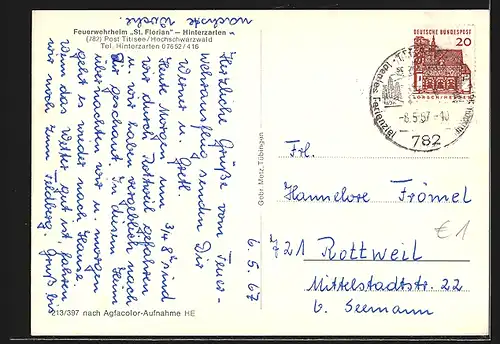 Feuerwehrheim „St. Florian" — Hinterzarten
(782) Post Titisee/Hochschwarzwald
Tel. Hinterzarten 07652/416
6.5.67
Herzliche Grüße vom Feuer-
wehrausflug senden Dir
Werner u. Gretl.
Heute Morgen um 3/4 8ʰ sind
wir durch Rottweil gefahren
u. wir haben vergeblich nach
Dir geschaut. In diesem Heim
übernachten wir u. morgen
geht es wieder nach Hause.
Wenn das Wetter gut ist, fahren
wir noch zum Feldberg. Gruß bis
nächste Woche.
213/397 nach Agfacolor-Aufnahme HE
Gebr. Metz, Tübingen
DEUTSCHE BUNDESPOST
20
LORSCH/HESSEN
ideales Ferienziel
-8.5.67-10
782
Frl.
Hannelore Frömel
€1
721 Rottweil
Mittelstadtstr. 22
b. Seemann